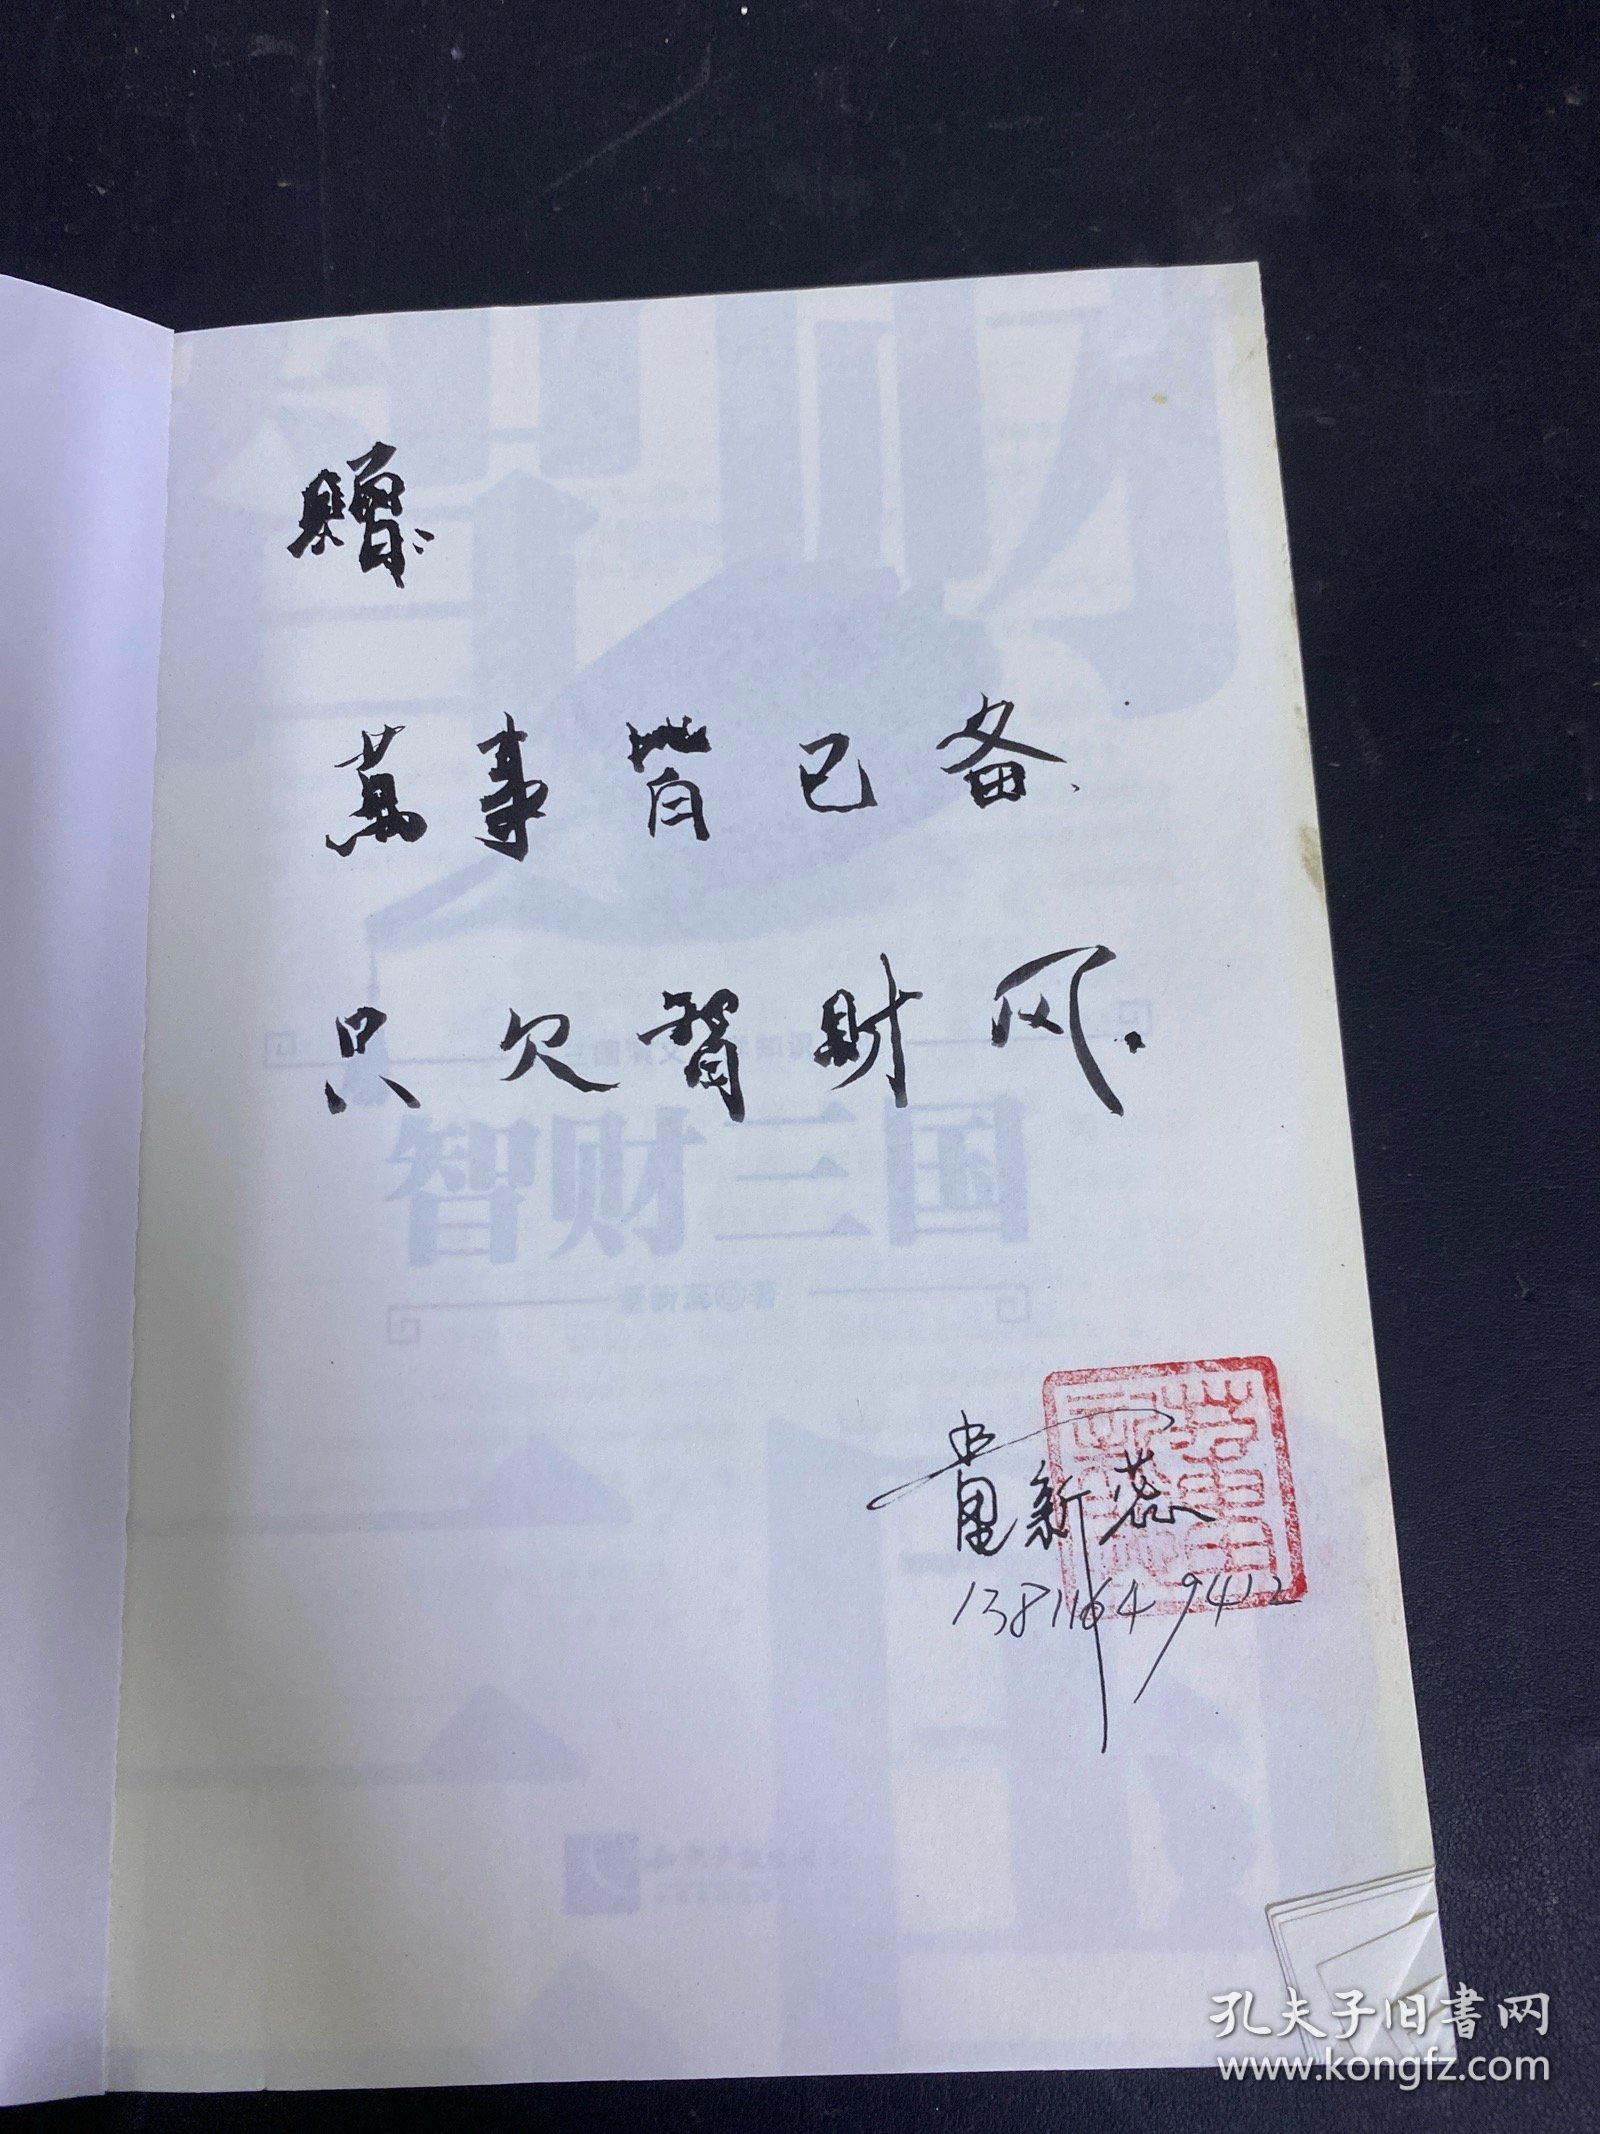 贈:
萬事皆已备、
只欠智財风.
智财三国
董新蕊 著
董新蕊
13811649412
孔夫子旧书网
www.kongfz.com